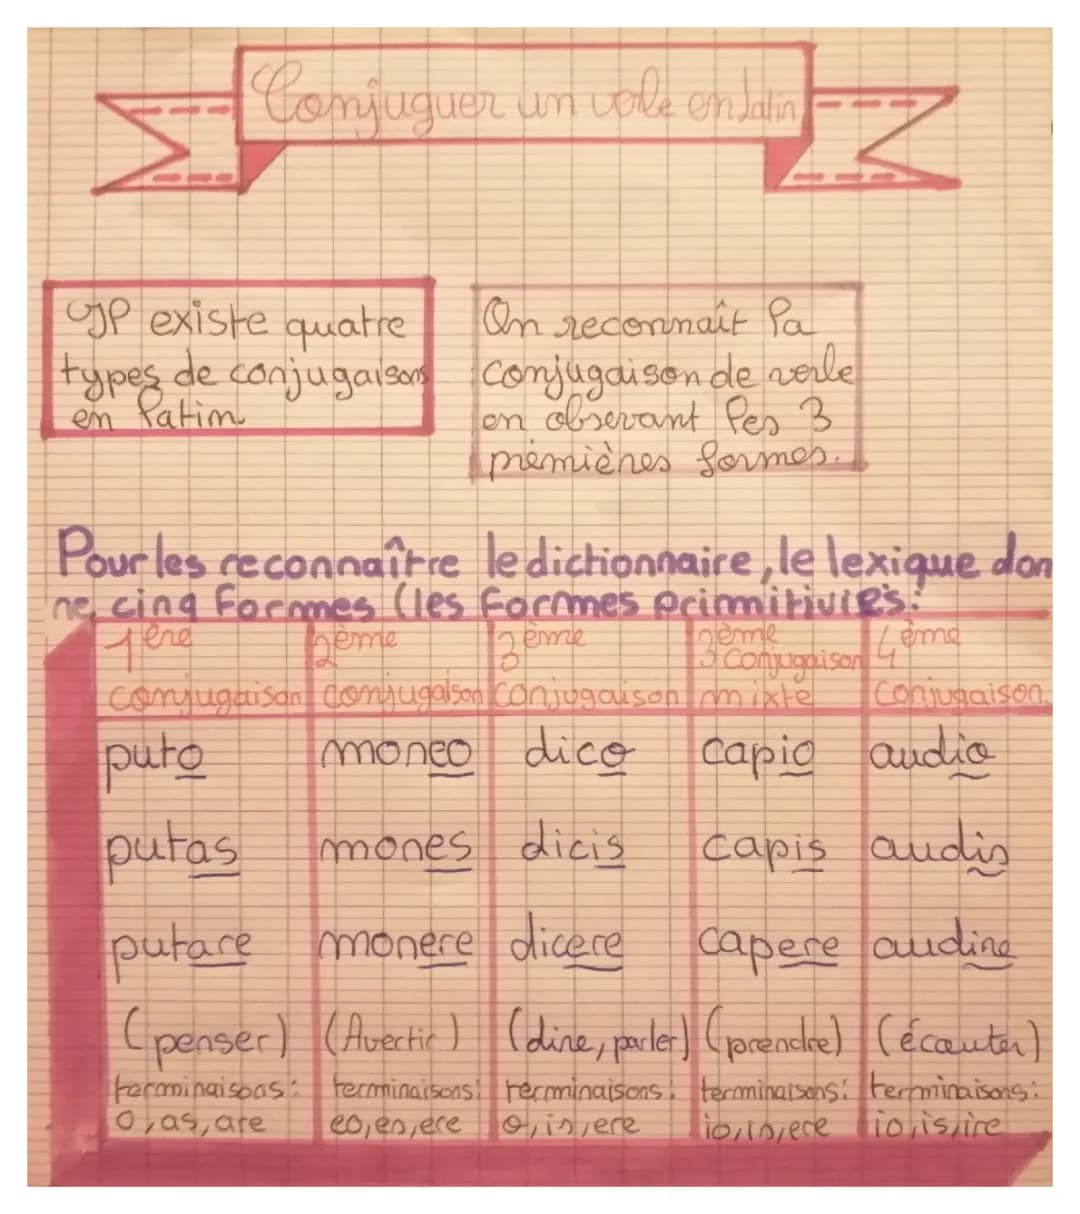 Conjuguer un verbe en latin
Il existe quatre
types de conjugaisons
en latin
On reconnaît la
conjugaison de verbe
en obsevant les 3
prémières formes.
Pour les reconnaître le dictionnaire, le lexique don
ne cinq formes (les formes primitivies:
1ère conjugaison 2ème conjugaison 3ème conjugaison 3ème conjugaison mixte 4ème conjugaison
puto moneo dico capio audio
putas mones dicis capis audis
putare monere dicere capere audire
(penser) (Avertir) (dire, parler) (prendre) (écouter)
terminaisons: terminaisons: terminaisons: terminaisons: terminaisons:
o, as, are eo, es, ere o, is, ere io, is, ere io, is, ire